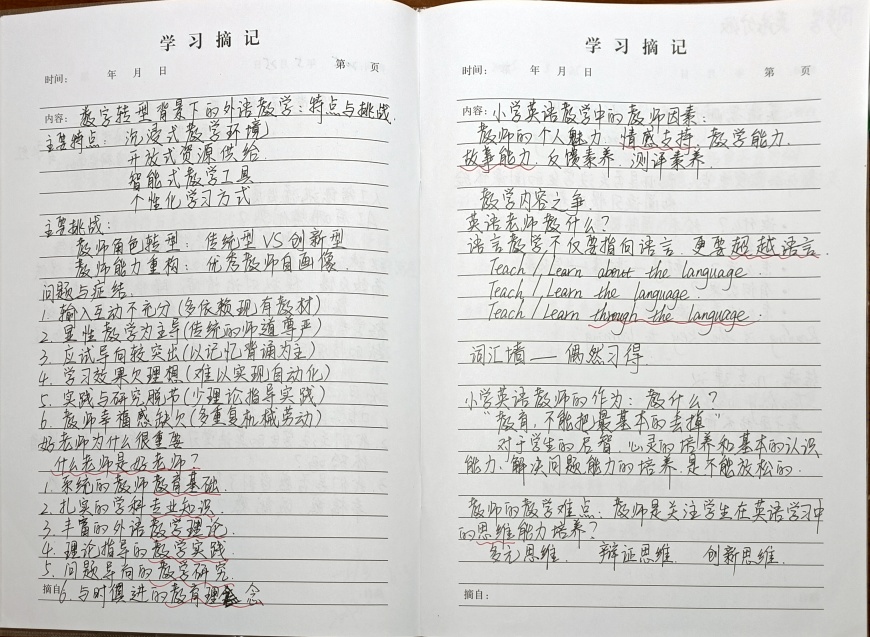 学习摘记
时间： 年 月 日 第 页
内容：数字转型背景下的外语教学：特点与挑战.
主要特点：沉浸式教学环境
开放式资源供给
智能式教学工具
个性化学习方式
主要挑战：
教师角色转型：传统型 VS 创新型
教师能力重构：优秀教师自画像.
问题与症结.
1. 输入互动不充分(多依赖现有教材)
2. 显性教学为主导(传统的师道尊严)
3. 应试导向较突出(以记忆背诵为主)
4. 学习效果欠理想(难以实现自动化)
5. 实践与研究脱节(少理论指导实践)
6. 教师幸福感缺欠(多重复机械劳动)
好老师为什么很重要
什么老师是好老师？
1. 系统的教师教育基础.
2. 扎实的学科专业知识.
3. 丰富的外语教学理论.
4. 理论指导的教学实践.
5. 问题导向的教学研究.
摘自：6. 与时俱进的教育理念
学习摘记
时间： 年 月 日 第 页
内容：小学英语教学中的教师因素：
教师的个人魅力. 情感支持. 教学能力.
故事能力. 反馈素养. 测评素养
教学内容之争
英语老师教什么？
语言教学不仅要指向语言. 更要超越语言.
Teach / Learn about the language.
Teach / Learn the language.
Teach / Learn through the language.
词汇墙 — 偶然习得.
小学英语教师的作为：教什么？
“教育, 不能把最基本的丢掉”
对于学生的启智. 心灵的培养和基本的认识
能力. 解决问题能力的培养. 是不能放松的.
教师的教学难点：教师是关注学生在英语学习中
的思维能力培养？
多元思维. 辩证思维. 创新思维.
摘自：